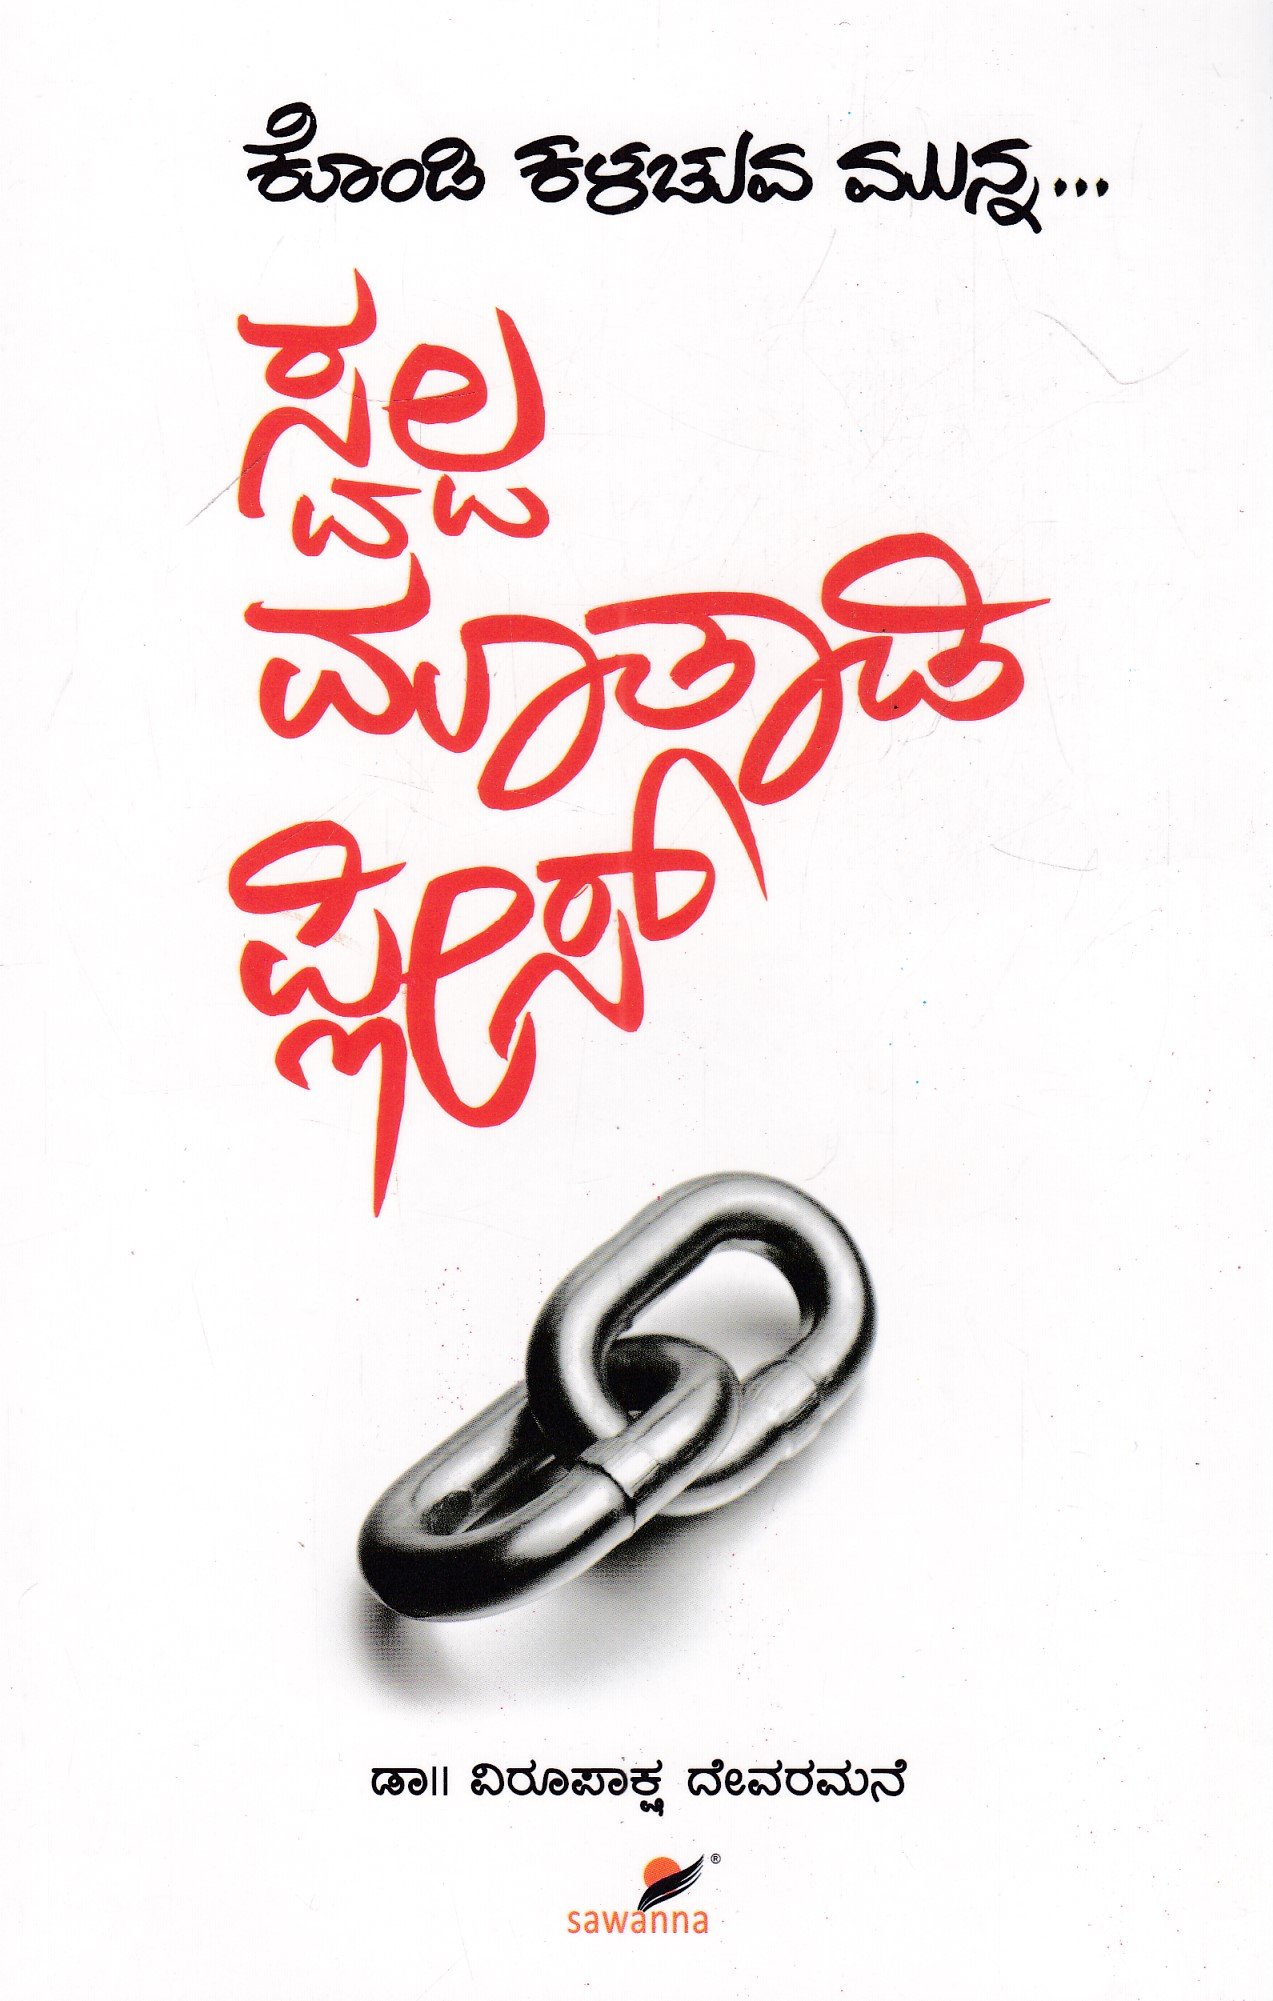 ಕೊಂಡಿ ಕಳಚುವ ಮುನ್ನ...
ಸ್ವಲ್ಪ
ಮಾತಾಡಿ
ಪ್ಲೀಸ್
ಡಾ|| ವಿರೂಪಾಕ್ಷ ದೇವರಮನೆ
®
sawanna